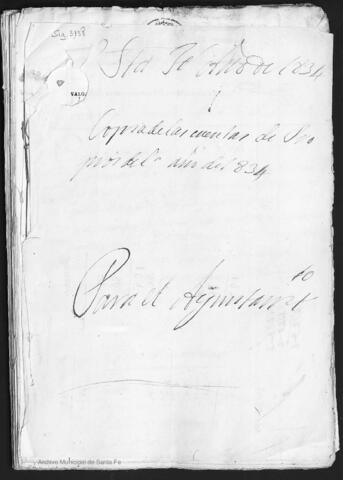 Sig. 3938
VALG.
Sta Fe Año de 1834
Copia de las cuentas de Pro
pios del año de 1834
Para el Ayuntamto
Archivo Municipal de Santa Fe